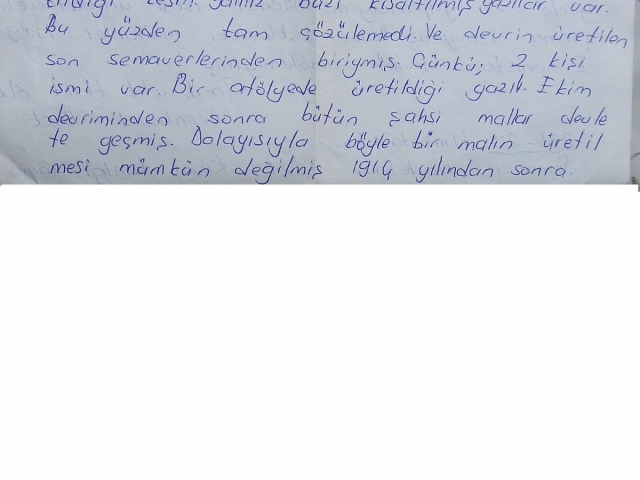 kesin yalnız bazı kısaltılmış yazılar var.
Bu yüzden tam çözülemedi. Ve devrin üretilen
son semaverlerinden biriymiş. Çünkü; 2 kişi
ismi var. Bir atölyede üretildiği yazılı. Ekim
devriminden sonra bütün şahsi mallar devle
te geçmiş. Dolayısıyla böyle bir malın üretil
mesi mümkün değilmiş 1914 yılından sonra.